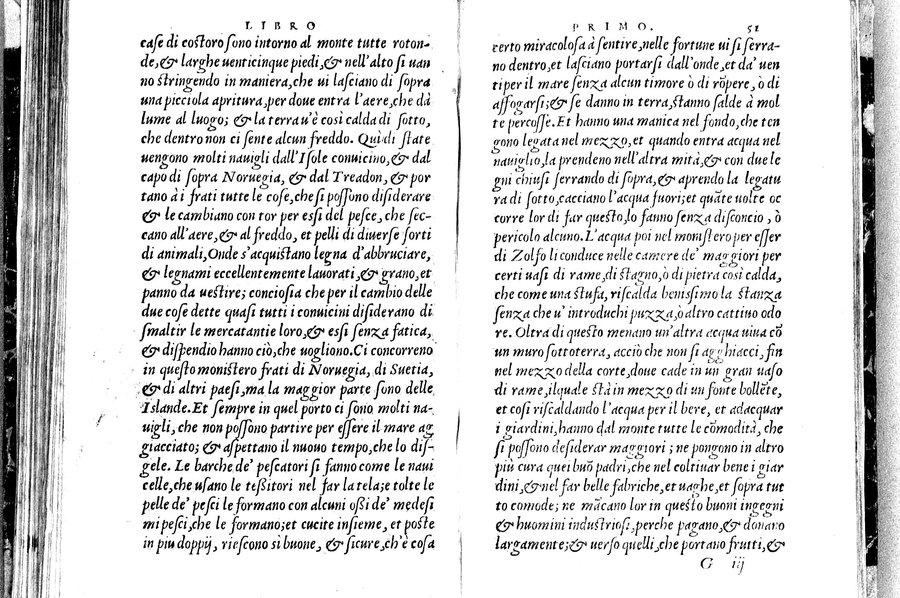 LIBRO
case di costoro sono intorno al monte tutte roton-
de, & larghe uenticinque piedi, & nell'alto si uan
no stringendo in maniera, che ui lasciano di sopra
una picciola apritura, per doue entra l'aere, che dà
lume al luogo; & la terra u'è così calda di sotto,
che dentro non ci sente alcun freddo. Quì di state
uengono molti nauigli dall'Isole conuicino, & dal
capo di sopra Noruegia, & dal Treadon, & por
tano à i frati tutte le cose, che si possono disiderare
& le cambiano con tor per essi del pesce, che sec-
cano all'aere, & al freddo, et pelli di diuerse sorti
di animali, Onde s'acquistano legna d'abbruciare,
& legnami eccellentemente lauorati, & grano, et
panno da uestire; conciosia che per il cambio delle
due cose dette quasi tutti i conuicini disiderano di
smaltir le mercatantie loro, & essi senza fatica,
& dispendio hanno ciò, che uogliono. Ci concorreno
in questo monistero frati di Noruegia, di Suetia,
& di altri paesi, ma la maggior parte sono delle
Islande. Et sempre in quel porto ci sono molti na-
uigli, che non possono partire per essere il mare ag
giacciato; & aspettano il nuouo tempo, che lo dis-
gele. Le barche de' pescatori si fanno come le naui
celle, che usano le teßitori nel far la tela; e tolte le
pelle de' pesci le formano con alcuni oßi de' medesi
mi pesci, che le formano; et cucite insieme, et poste
in piu doppij, riescono sì buone, & sicure, ch'è cosa
PRIMO. 51
certo miracolosa à sentire, nelle fortune ui si serra-
no dentro, et lasciano portarsi dall'onde, et da' uen
ti per il mare senza alcun timore ò di rõpere, ò di
affogarsi; & se danno in terra, stanno salde à mol
te percosse. Et hanno una manica nel fondo, che ten
gono legata nel mezzo, et quando entra acqua nel
nauiglio, la prendeno nell'altra mità, & con due le
gni chiusi serrando di sopra, & aprendo la legatu
ra di sotto, cacciano l'acqua fuori; et quãte uolte oc
corre lor di far questo, lo fanno senza disconcio, ò
pericolo alcuno. L'acqua poi nel monistero per esser
di Zolfo li conduce nelle camere de' maggiori per
certi uasi di rame, di stagno, ò di pietra così calda,
che come una stufa, riscalda benissimo la stanza
senza che u' introduchi puzza, ò altro cattiuo odo
re. Oltra di questo menano un'altra acqua uiua cõ
un muro sottoterra, acciò che non si agghiacci, fin
nel mezzo della corte, doue cade in un gran uaso
di rame, il quale stà in mezzo di un fonte bollẽte,
et così riscaldando l'acqua per il bere, et adacquar
i giardini, hanno dal monte tutte le cõmodità, che
si possono desiderar maggiori; ne pongono in altro
più cura quei buõ padri, che nel coltiuar bene i giar
dini, & nel far belle fabriche, et uaghe, et sopra tut
to comode; ne mãcano lor in questo buoni ingegni
& huomini industriosi, perche pagano, & donano
largamente; & uerso quelli, che portano frutti, &
G iij